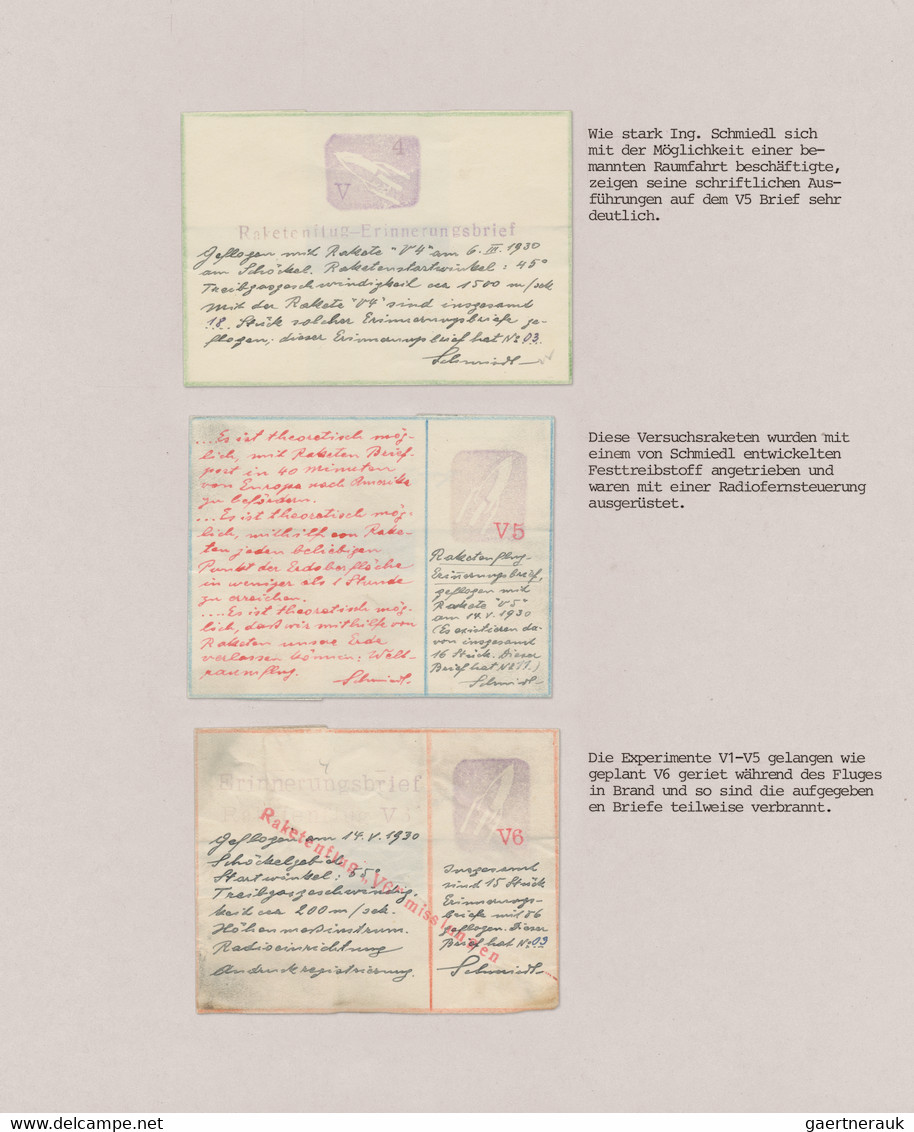 Wie stark Ing. Schmiedl sich
mit der Möglichkeit einer be-
mannten Raumfahrt beschäftigte,
zeigen seine schriftlichen Aus-
führungen auf dem V5 Brief sehr
deutlich.
4
V
Raketenflug-Erinnerungsbrief
Geflogen mit Rakete "V4" am 6. III. 1930
am Schöckel. Raketenstartwinkel: 45°
Treibgasgeschwindigkeit ca 1500 m/sek
Mit der Rakete "V4" sind insgesamt
18. Stück solcher Erinnerungsbriefe ge-
flogen; dieser Erinnerungsbrief hat No 03.
Schmiedl
Diese Versuchsraketen wurden mit
einem von Schmiedl entwickelten
Festtreibstoff angetrieben und
waren mit einer Radiofernsteuerung
ausgerüstet.
....Es ist theoretisch mög-
lich, mit Raketen Brief-
post in 40 Minuten
von Europa nach Amerika
zu befördern.
...Es ist theoretisch mög-
lich, mithilfe von Rake-
ten jeden beliebigen
Punkt der Erdoberfläche
in weniger als 1 Stunde
zu erreichen.
....Es ist theoretisch mög-
lich, dass wir mithilfe von
Raketen unsere Erde
verlassen können: Welt-
raumflug.
Schmiedl.
V5
Raketenflug-
Erinnerungsbrief,
geflogen mit
Rakete "V5"
am 14. V. 1930
(Es existieren da-
von insgesamt
16 Stück. Dieser
Brief hat No 11.)
Schmiedl
Die Experimente V1-V5 gelangen wie
geplant V6 geriet während des Fluges
in Brand und so sind die aufgegeben
en Briefe teilweise verbrannt.
Erinnerungsbrief
Raketenflug "V6" misslungen
Geflogen am 14. V. 1930
Schöckelgebiet
Startwinkel: 55°
Treibgasgeschwindig-
keit ca 200 m/sek.
Höhenmessinstrum.
Radioeinrichtung
Andruckregistrierung.
V6
Insgesamt
sind 15 Stück
Erinnerungs-
briefe mit V6
geflogen. Dieser
Brief hat No 09
Schmiedl
delcampe.net
gaertnerauk